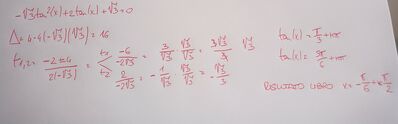 -√3 tan²(x)+2tan(x)+√3=0
Δ= 4-4(-√3)(√3)=16
t₁,₂= -2±4 / 2(-√3) =
t₁ -6/-2√3 = 3/√3 · √3/√3 = 3√3/3 √3
t₂ 2/-2√3 = -1/√3 · √3/√3 = -√3/3
tan(x)= π/3 +kπ
tan(x)= 5π/6 +kπ
RISULTATO LIBRO x= -π/6 +k π/2